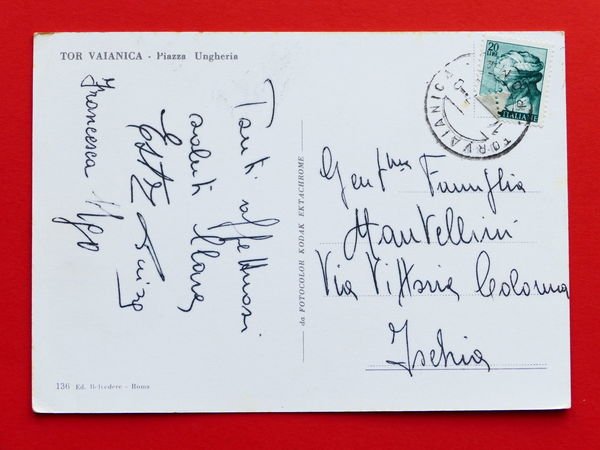 TOR VAIANICA - Piazza Ungheria
Tanti affettuosi
saluti Clara,
Luisa
Francesca Ugo
136 Ed. Belvedere - Roma
da FOTOCOLOR KODAK EKTACHROME
20
LIRE
ITALIANE
TORVAIANICA
Gent.ma Famiglia
Mantellini
Via Vittoria Colonna
Ischia